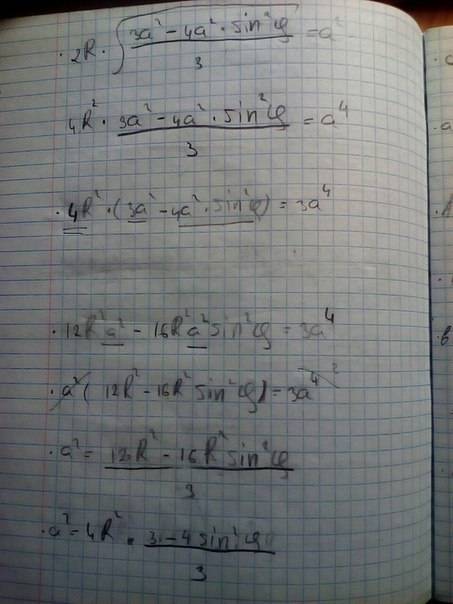 · 2R · √(3a² - 4a² · sin²φ / 3) = a²
4R² · (3a² - 4a² · sin²φ) / 3 = a⁴
· 4R² · (3a² - 4a² · sin²φ) = 3a⁴
· 12R²a² - 16R²a² sin²φ = 3a⁴
· a² (12R² - 16R² sin²φ) = 3a⁴ ²
· a² = (12R² - 16R² sin²φ) / 3
· a² = 4R² · (3 - 4 sin²φ) / 3